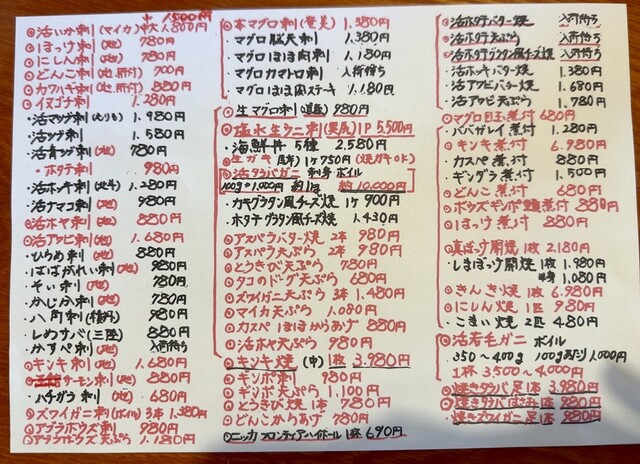 中 1,500円
◎活いか刺(マイカ)大1,800円
◎ほっけ刺(地) 780円
◎にしん刺(地) 780円
◎どんこ刺(地、肝付) 900円
◎カワハギ刺(地、肝付) 880円
◎イヌゴチ刺 1,280円
・活マツブ刺(えりも) 1,980円
・活ツブ刺 1,580円
・活青ツブ刺(地) 780円
・ホタテ刺 980円
・活ホッキ刺 1,280円
・活ナマコ刺(地) 980円
◎活ホヤ刺(地) 880円
◎活アワビ刺(地) 1,680円
・ひらめ刺(地) 880円
・ばばがれい刺(地) 980円
・そい刺(地) 780円
・かじか刺(地) 780円
・八角刺(積丹) 980円
・しめサバ(三陸) 880円
・かすべ刺(地) 入荷待ち
◎キンキ刺(地) 1,680円
サーモン刺(地) 880円
・ハチガラ刺(地) 680円
◎ズワイガニ刺(ボイル) 3本1,380円
◎アブラボウズ刺 980円
◎アブラボウズ天ぷら 1,180円
◎本マグロ刺(奄美) 1,380円
・マグロ脳天刺 1,380円
・マグロほほ肉刺 1,180円
・マグロカマトロ刺 入荷待ち
・マグロほほ肉ステーキ 1,180円
◎生マグロ刺 980円
◎塩水生ウニ刺 1P 5,500円
・海鮮丼 5種 2,580円
◎生ガキ 1ケ750円(焼ガキOK)
◎活タラバガニ 刺身 ボイル
100g=1,000円 約1kg 約10,000円
・カキグラタン風チーズ焼 1ケ900円
・ホタテグラタン風チーズ焼 1,430円
◎アスパラバター焼 2本 980円
◎アスパラ天ぷら 2本 980円
◎とうきび天ぷら 780円
◎タコのドーグ天ぷら 680円
◎ズワイガニ天ぷら 3本 1,480円
◎マイカ天ぷら 1,080円
◎カスベほほからあげ 880円
◎活ホヤ天ぷら 980円
◎キンキ焼(中) 1枚 3,980円
◎ギンポ刺 980円
◎ギンポ天ぷら 1,180円
◎とうきび焼 1本 780円
◎どんこからあげ 780円
◎ニッカフロンティアハイボール 1杯 690円
・活ホタテバター焼 入荷待ち
・活ホタテ天ぷら 入荷待ち
・活ホタテグラタン風チーズ焼 入荷待ち
・活ホッキバター焼 1,380円
・活アワビバター焼 1,680円
・活アワビ天ぷら 1,780円
◎マグロ目玉煮付 680円
・ババガレイ煮付 1,280円
◎キンキ煮付 6,980円
・カスベ煮付 880円
・ギンダラ煮付 1,500円
◎どんこ煮付 680円
◎ボウズギンポ煮付 880円
◎ほっけ煮付 880円
◎真ほっけ開焼 1枚 2,180円
・しまほっけ開焼 1枚 1,980円
半身 1,080円
◎きんき焼 1枚 6,980円
◎にしん焼 1匹 980円
・こまい焼 2匹 480円
◎活若毛ガニ ボイル
350~400g 100gあたり1,000円
1杯3,500~4,000円
◎焼きタラバ足1本 3,980円
◎焼きタラバはさみ1本 980円
・焼きズワイガニ足1本 980円